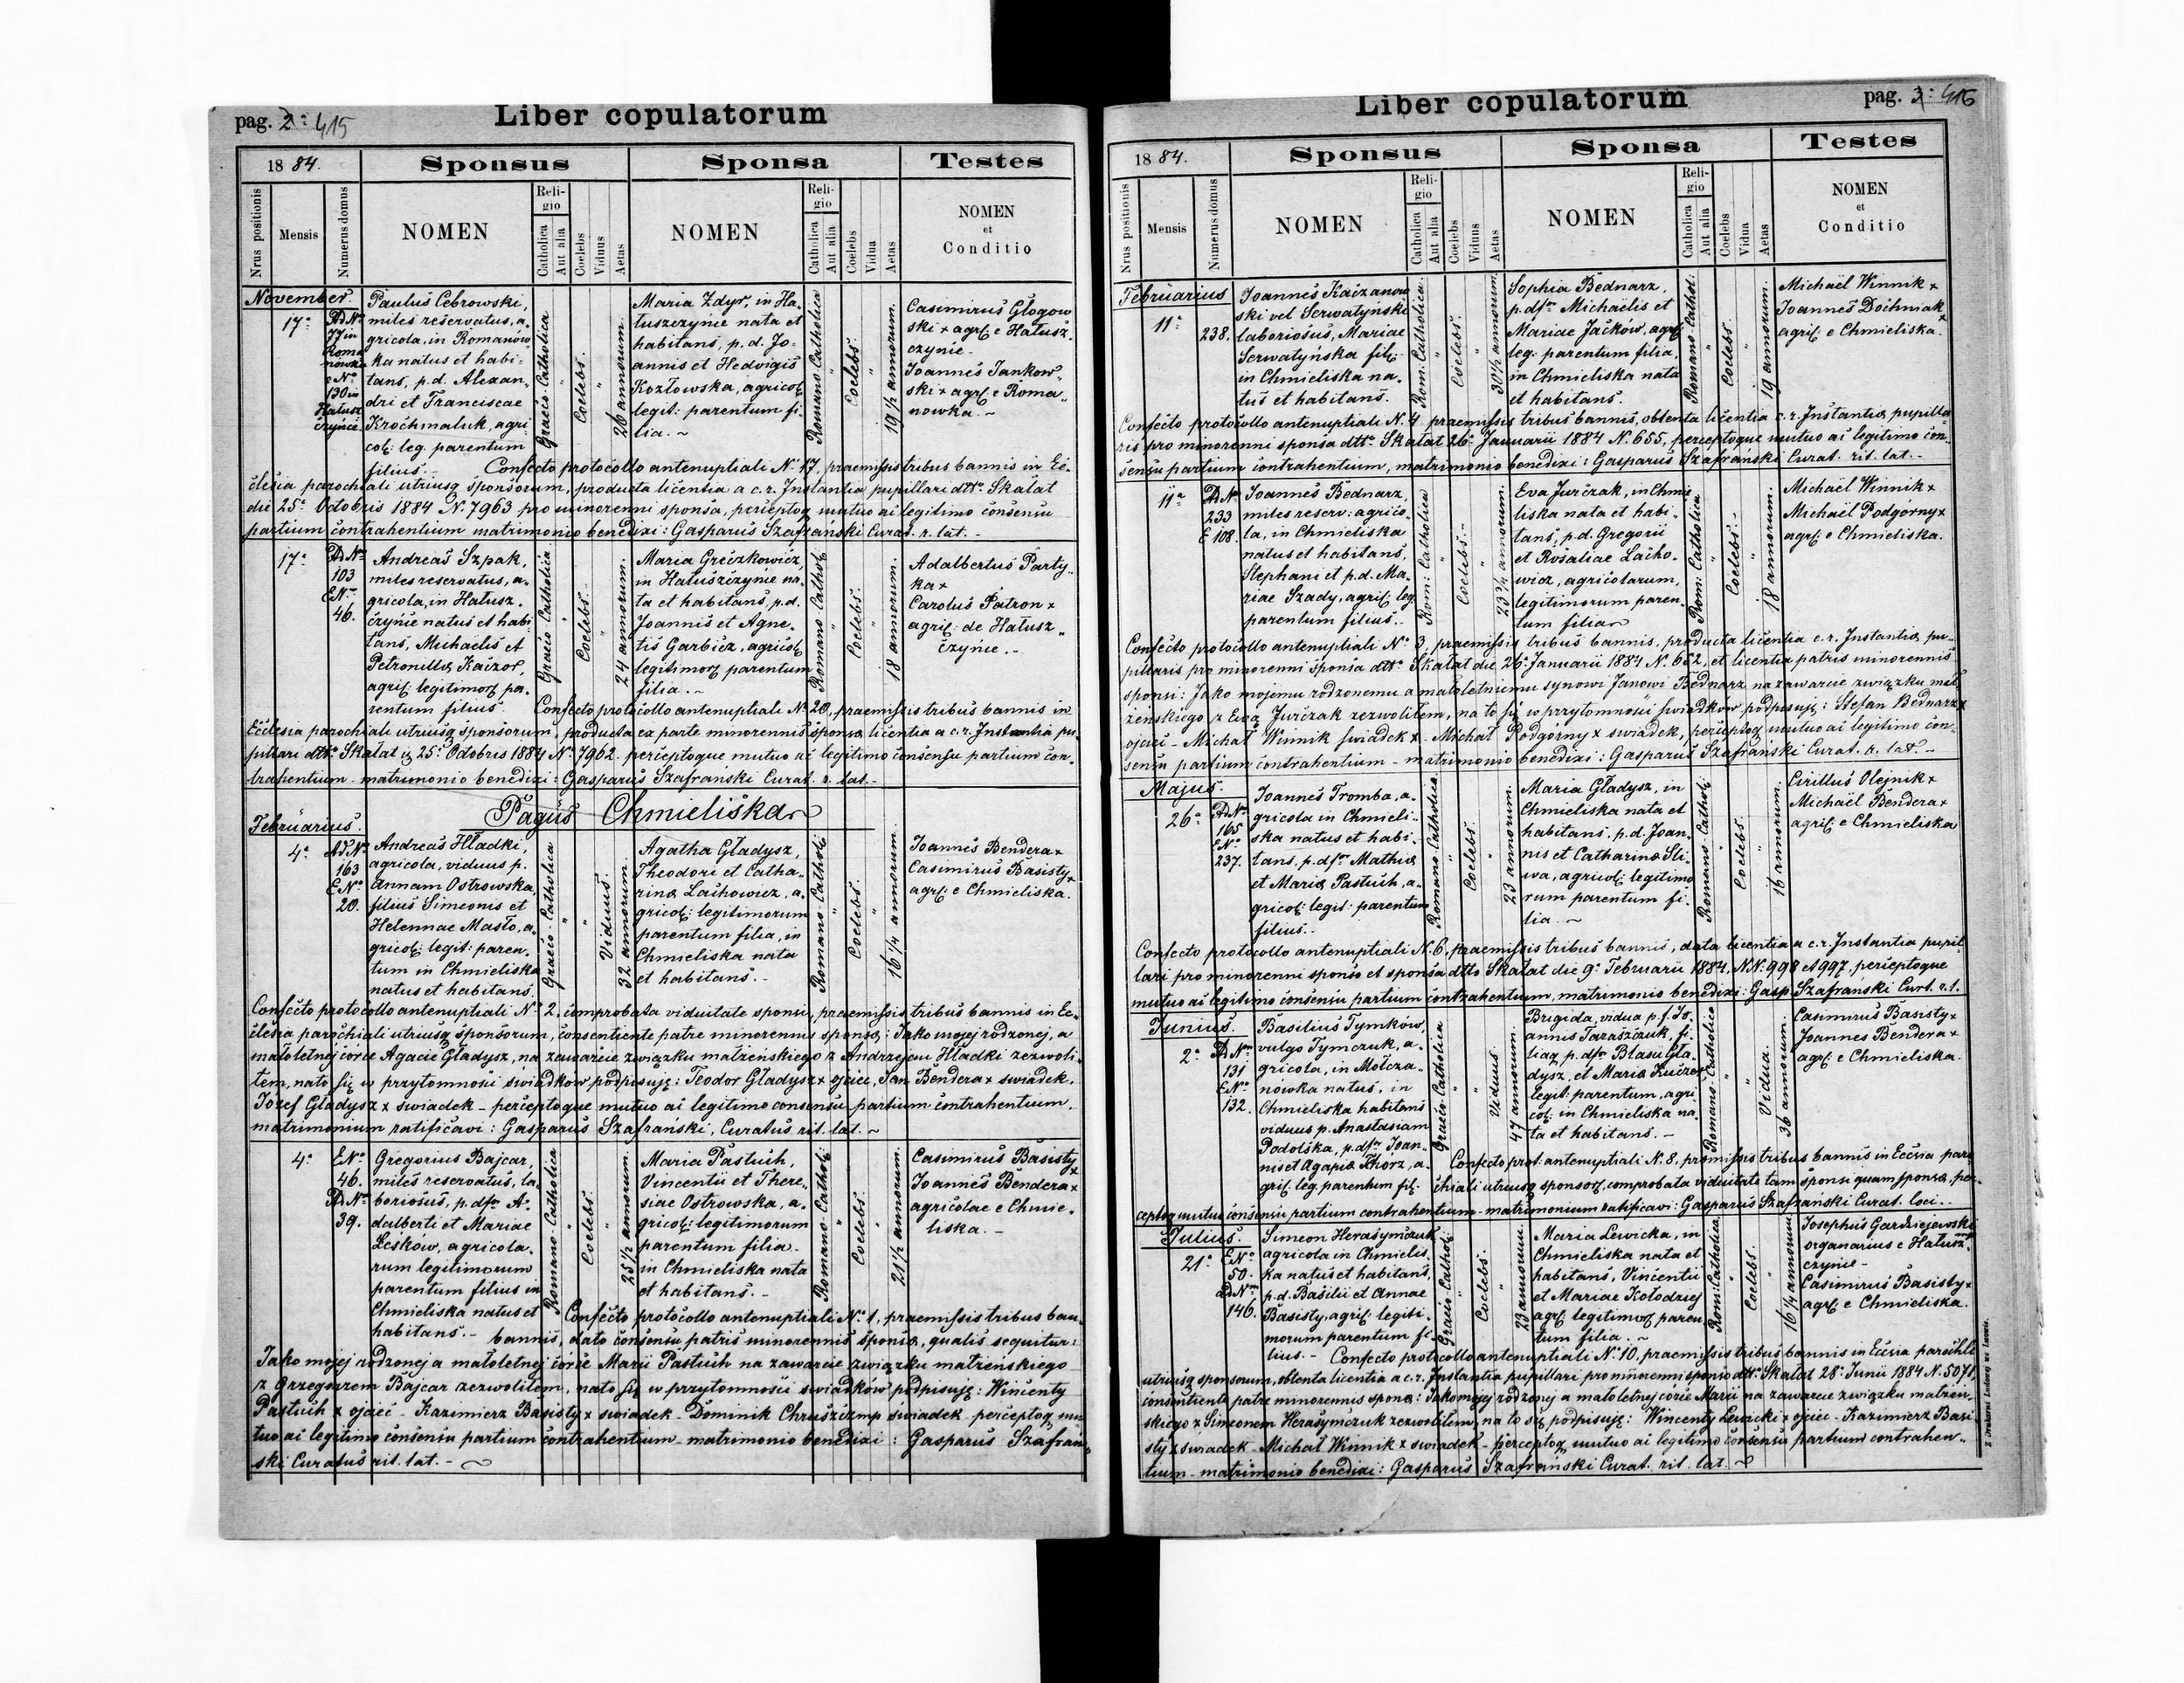 pag. 2: 415
Liber copulatorum
1884.
Sponsus
Sponsa
Testes
Nrus positionis
Mensis
Numerus domus
NOMEN
Religio
Catholica
Aut alia
Coelebs
Viduus
Aetas
NOMEN
Religio
Catholica
Aut alia
Coelebs
Vidua
Aetas
NOMEN
et
Conditio
November.
17a
Ad No
77 in
Roma
nówka
e No
130 in
Hałusz
czyńce
Paulus Cebrowski,
miles reservatus, a-
gricola, in Romanów
ka natus et habi-
tans, p.d. Alexan-
dri et Franciscae
Krochmaluk, agri
col: leg. parentum
filius.-
Graeco-Catholica
"
Coelebs.
"
26 annorum.
Maria Zdyr, in Ha-
łuszczyńce nata et
habitans, p.d. Jo-
annis et Hedvigis
Kozłowska, agricol
legit: parentum fi-
lia.~
Romano-Catholica
"
Coelebs.
"
19 1/2 annorum.
Casimirus Głogow
ski + agrl: e Hałusz
czyńce.
Joannes Jankow-
ski + agrl: e Roma-
nówka.~
Confecto protocollo antenuptiali No 17, praemissis tribus bannis in Ec-
clesia parochiali utriusq sponsorum, producta licentia a c.r. Instantia pupillari dtto Skałat
die 25a Octobris 1884 N. 7963 pro minorenni sponsa, perceptoq mutuo ac legitimo consensu
partium contrahentium matrimonio benedixi: Gasparus Szafrański Curat. r. lat.-
17a
Ad No
103
E No
46.
Andreas Szpak,
miles reservatus, a-
gricola, in Hałusz-
czyńce natus et habi
tans, Michaelis et
Petronillae Kaizor,
agril: legitimor pa-
rentum filius.
Graeco Catholica
"
Coelebs.
"
24 annorum.
Maria Greczkowicz,
in Hałuszczyńce na-
ta et habitans, p.d.
Joannis et Agne-
tis Garbicz, agricol
legitimor parentum
filia.~
Romano Cathol
"
Coelebs.
"
18 annorum.
Adalbertus Party-
ka +
Carolus Patron +
agril: de Hałusz-
czyńce.-
Confecto protocollo antenuptiali No 20, praemissis tribus bannis in
Ecclesia parochiali utriusq sponsorum, producta ex parte minorennis sponsae licentia a c.r. Instantia pu-
pillari dtto Skałat 25a Octobris 1884 No 7902. perceptoque mutuo ac legitimo consensu partium con-
trahentium - matrimonio benedixi: Gasparus Szafrański Curat. r. lat.-
Pagus Chmieliska
Februarius.
4a
Ad No
163
E No
20.
Andreas Hładki,
agricola, viduus p.
Annam Ostrowska,
filius Simeonis et
Helennae Masło, a-
gricol: legit: paren-
tum in Chmieliska
natus et habitans.
Graeco-Catholica
"
"
Viduus.
32 annorum.
Agatha Gładysz,
Theodori et Catha-
rinae Lachowicz, a-
gricol: legitimorum
parentum filia, in
Chmieliska nata
et habitans.-
Romano Cathol:
"
Coelebs.
"
16 1/4 annorum.
Joannes Bendera +
Casimirus Basisty +
agrl: e Chmieliska.
Confecto protocollo antenuptiali No 2, comprobata viduitate sponsi, praemissis tribus bannis in Ec-
clesia parochiali utriusq sponsorum, consentiente patre minorennis sponsae: Jako mojej rodzonej, a
małoletnej córce Agacie Gładysz, na zawarcie związku małżeńskiego z Andrzejem Hładki zezwoli-
łem, na to się w przytomności świadków podpisuję: Teodor Gładysz + ojciec, Jan Bendera + świadek.
Józef Gładysz x świadek - perceptoque mutuo ac legitimo consensu partium contrahentium,
matrimonium ratificavi: Gasparus Szafrański, Curatus rit. lat.~
4a
E No
46.
Ad No
39.
Gregorius Bajcar,
miles reservatus, la-
boriosus, p. dfr A-
dalberti et Mariae
Leśków, agricola-
rum legitimorum
parentum filius in
Chmieliska natus et
habitans.-
Romano-Catholica
"
Coelebs.
"
25 1/2 annorum.
Maria Pastuch,
Vincentii et There-
siae Ostrowska, a-
gricol: legitimorum
parentum filia-
in Chmieliska nata
et habitans.-
Romano-Cathol:
"
Coelebs.
"
21 1/2 annorum.
Casimirus Basisty
+
Joannes Bendera +
agricolae e Chmie-
liska.-
Confecto protocollo antenuptiali No 1, praemissis tribus ban-
bannis, dato consensu patris minorennis sponsae, qualis sequitur:
Jako mojej rodzonej a małoletnej córce Marii Pastuch na zawarcie związku małżeńskiego
z Grzegorzem Bajcar zezwoliłem, na to się w przytomności świadków podpisuję: Wincenty
Pastuch x ojciec - Kazimierz Basisty x świadek - Dominik Chruszcz mp świadek - perceptoq mu
tuo ac legitimo consensu partium contrahentium - matrimonio benedixi: Gasparus Szafrań-
ski Curatus rit. lat.-~
Liber copulatorum
pag. 3: 416
1884.
Sponsus
Sponsa
Testes
Nrus positionis
Mensis
Numerus domus
NOMEN
Religio
Catholica
Aut alia
Coelebs
Viduus
Aetas
NOMEN
Religio
Catholica
Aut alia
Coelebs
Vidua
Aetas
NOMEN
et
Conditio
Februarius
11a
238.
Joannes Kaczanow
ski vel Serwatyński
laboriosus, Mariae
Serwatyńska fil:
in Chmieliska na-
tus et habitans.
Rom: Catholica.
"
Coelebs.
"
30 1/2 annorum.
Sophia Bednarz,
p. dfr Michaelis et
Mariae Jaćków, agrl
leg. parentum filia,
in Chmieliska nata
et habitans.
Romano-Cathol:
"
Coelebs.
"
19 annorum.
Michaël Winnik +
Joannes Dochniak
+
agril: e Chmieliska.
Confecto protocollo antenuptiali N. 4 praemissis tribus bannis, obtenta licentia c.r. Instantiae pupilla
ris pro minorenni sponsa dtto Skałat 26a Januarii 1884 N. 655, perceptoque mutuo ac legitimo con-
sensu partium contrahentium, matrimonio benedixi: Gasparus Szafrański Curat. rit. lat.-
11a
Ad No
233
E 108.
Joannes Bednarz,
miles reserv: agrico-
la, in Chmieliska
natus et habitans,
Stephani et p.d. Ma-
riae Szady, agril: leg.
parentum filius.-
Rom: Catholica
"
Coelebs.-
"
23 3/4 annorum.
Eva Jurczak, in Chmie
liska nata et habi-
tans, p.d. Gregorii
et Rosaliae Lacho-
wicz, agricolarum,
legitimorum paren-
tum filia
Rom: Catholica
"
Coelebs.-
"
18 annorum.
Michaël Winnik +
Michaël Podgórny +
agrl: e Chmieliska.
Confecto protocollo antenuptiali No 3, praemissis tribus bannis, producta licentia c.r. Instantiae pu-
pillaris pro minorenni sponsa dtto Skałat die 26a Januarii 1884 N. 652, et licentia patris minorennis
sponsi: Jako mojemu rodzonemu a małoletniemu synowi Janowi Bednarz na zawarcie związku mał
żeńskiego z Ewą Jurczak zezwoliłem, na to się w przytomności świadków podpisuję: Stefan Bednarz x
ojciec - Michał Winnik świadek x - Michał Podgórny x świadek, perceptoq mutuo ac legitimo con-
sensu partium contrahentium - matrimonio benedixi: Gasparus Szafrański Curat. r. lat.-
Majus.
26a
Ad No
165
E No
237.
Joannes Tromba, a-
gricola in Chmieli-
ska natus et habi-
tans, p. dfr Mathiae
et Mariae Pastuch, a-
gricol: legit: parentum
filius.-
Romano Catholica
"
Coelebs.
"
23 annorum.
Maria Gładysz, in
Chmieliska nata et
habitans, p.d. Joan-
nis et Catharinae Sli-
wa, agricol: legitimo
rum parentum fi-
lia.~
Romano-Cathol:
"
Coelebs.
"
16 annorum.
Cirillus Olejnik +
Michaël Bendera +
agril: e Chmieliska
Confecto protocollo antenuptiali N. 6, praemissis tribus bannis, data licentia a c.r. Instantia pupil
lari pro minorenni sponso et sponsa dtto Skałat die 9a Februarii 1884, NN. 998 et 997, perceptoque
mutuo ac legitimo consensu partium contrahentium, matrimonio benedixi: Gasp. Szafrański Curt. r.l.
Junius.
2a
Ad Nm
131
E No
132.
Basilius Tymków,
vulgo Tymczuk, a-
gricola, in Mołcza-
nówka natus, in
Chmieliska habitans
viduus p. Anastasiam
Podolska, p. dfr Joan-
nis et Agapiae Thorz, a-
gril. leg. parentum fil.
Graeco-Catholica
"
"
Viduus.
47 annorum.
Brigida, vidua p.f. Jo-
annis Taraszczuk, fi-
lia p. dfr Blasii Gła-
dysz, et Mariae Kuczer
legit: parentum, agri
col: in Chmieliska na-
ta et habitans.-
Romano-Catholica
"
"
Vidua.
36 annorum.
Casimirus Basisty +
Joannes Bendera +
agrl: e Chmieliska.
Confecto prot. antenuptiali N. 8. praemissis tribus bannis in Eccsia paro
chiali utriusq sponsor, comprobata viduitate tam sponsi quam sponsae, per-
ceptoq mutuo consensu partium contrahentium - matrimonium ratificavi: Gasparus Szafrański Curat. loci.-
Julius.
21a
E No
50.
Ad Nm
146.
Simeon Herasymczuk
agricola in Chmielis
ka natus et habitans,
p.d. Basilii et Annae
Basisty, agril: legiti-
morum parentum fi-
lius.-
Graeco-Cathol:
"
Coelebs.
"
23 annorum.
Maria Lewicka, in
Chmieliska nata et
habitans, Vincentii
et Mariae Kołodziej
agrl: legitimor paren
tum filia.~
Rom: Catholica
"
Coelebs.
"
16 1/4 annorum
Josephus Gardziejewski mp
organarius e Hałusz-
czyńce-
Casimirus Basisty +
agrl: e Chmieliska.
Confecto protocollo antenuptiali No 10, praemissis tribus bannis in Eccsia parochli
utriusq sponsorum, obtenta licentia a c.r. Instantia pupillari pro minorenni sponso dtto Skałat 28a Junii 1884 N. 5071,
consentiente patre minorennis sponsae: Jako mojej rodzonej a małoletnej córce Marii na zawarcie związku małżeń-
skiego z Simeonem Herasymczuk zezwoliłem, na to się podpisuję: Wincenty Lewicki x ojciec - Kazimierz Basi
sty x świadek - Michał Winnik x świadek - perceptoq mutuo ac legitimo consensu partium contrahen-
tium - matrimonio benedixi: Gasparus Szafrański Curat. rit. lat.~
Z Drukarni Ludowej we Lwowie.